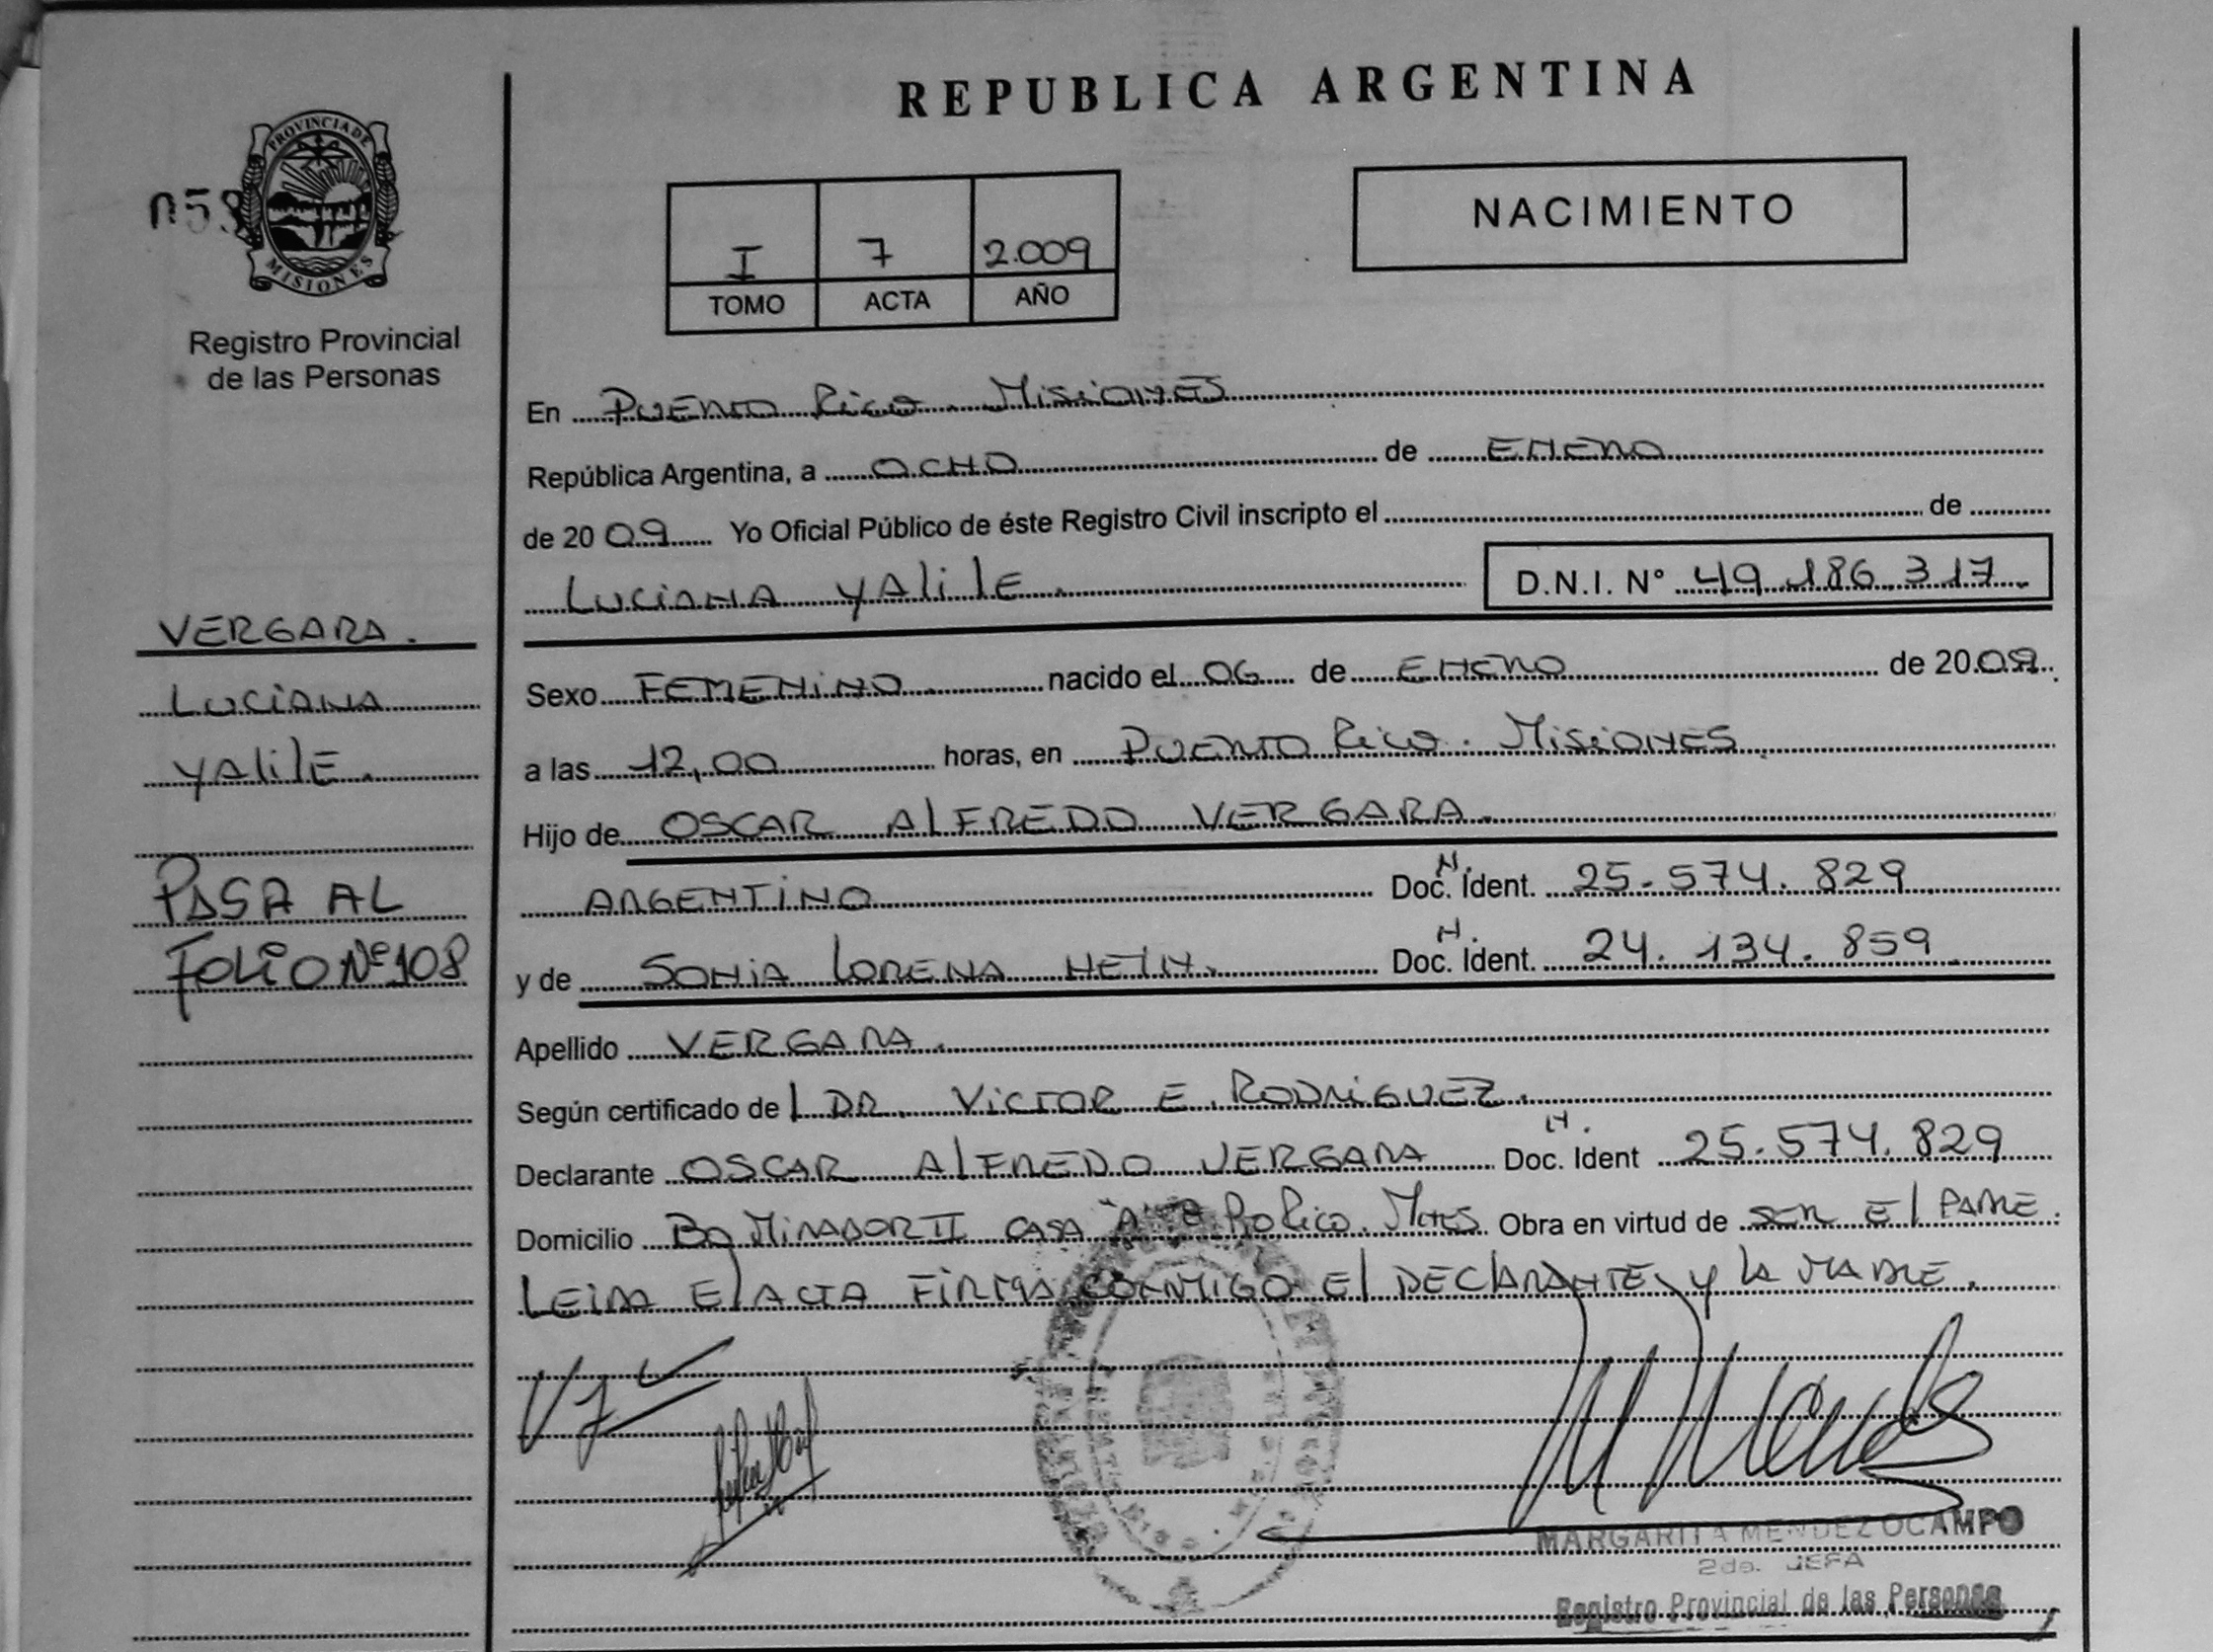 REPUBLICA ARGENTINA
PROVINCIA DE
MISIONES
Registro Provincial
de las Personas
NACIMIENTO
I 7 2.009
TOMO ACTA AÑO
En Puerto Rico. Misiones
República Argentina, a OCHO de ENERO
de 20 09 Yo Oficial Público de éste Registro Civil inscripto el de
LUCIANA YALILE. D.N.I. N° 49.186.317.
VERGARA.
LUCIANA
YALILE.
PASA AL
FOLIO Nº 108
Sexo FEMENINO. nacido el 06 de ENERO de 20 09.
a las 12,00 horas, en Puerto Rico. Misiones.
Hijo de OSCAR ALFREDO VERGARA.
ARGENTINO Doc. N. Ident. 25.574.829
y de SONIA LORENA Doc. N. Ident. 24.134.859.
Apellido VERGARA.
Según certificado de l DR. VICTOR E. RODRIGUEZ.
Declarante OSCAR ALFREDO VERGARA Doc. N. Ident 25.574.829
Domicilio Bo MIRADOR II CASA Pto Rico. Mnes. Obra en virtud de SER EL PADRE.
LEIDA EL ACTA FIRMA CONMIGO EL DECLARANTE Y LA MADRE.
MARGARITA MENDEZ OCAMPO
2da. JEFA
Registro Provincial de las Personas